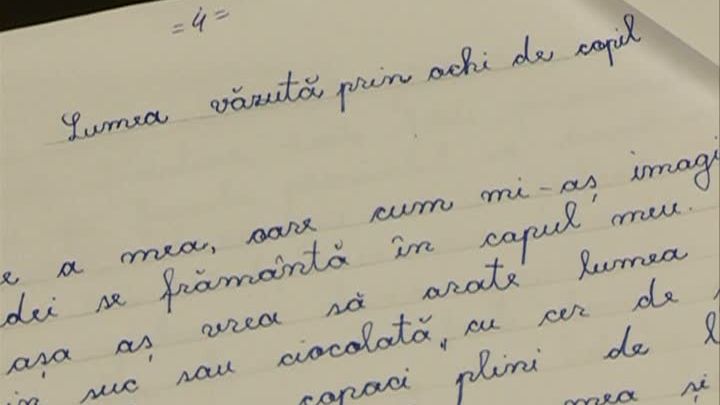 = 4 =
Lumea văzută prin ochi de copil
e a mea, oare cum mi-aș imagi
dei se frământă în capul meu.
așa aș vrea să arate lumea
in suc sau ciocolată, cu cer de
copaci plini de l
mea și